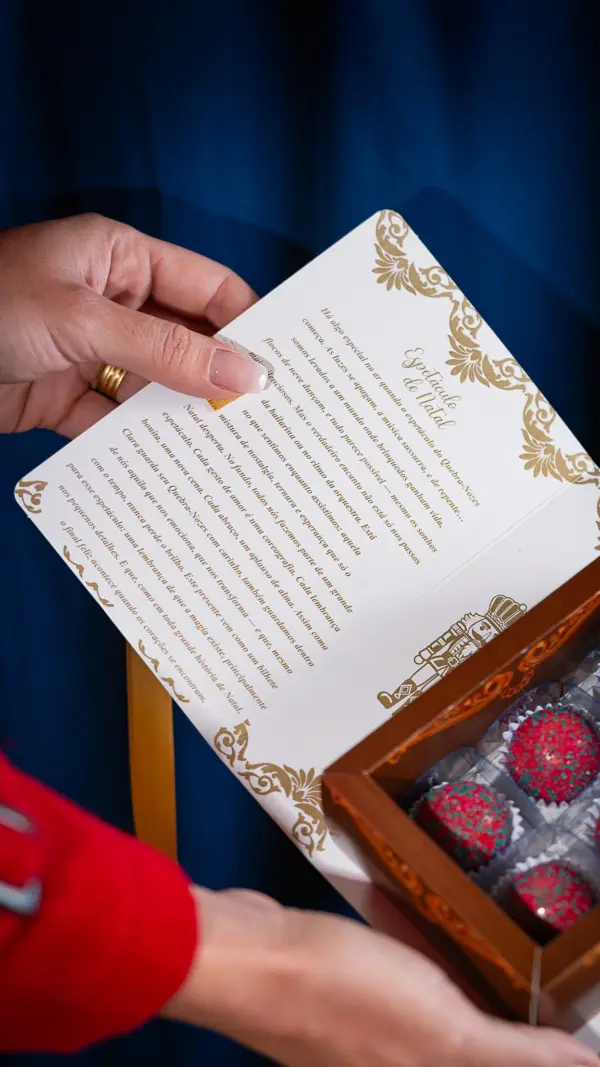 Espetáculo
de Natal
Há algo especial no ar quando o espetáculo do Quebra-Nozes
começa. As luzes se apagam, a música sussurra, e de repente..
somos levados a um mundo onde brinquedos ganham vida,
flocos de neve dançam, e tudo parece possível — mesmo os sonhos
Mas o verdadeiro encanto não está só nos passos
da bailarina ou no ritmo da orquestra. Está
no que sentimos enquanto assistimos: aquela
mistura de nostalgia, ternura e esperança que só o
Natal desperta. No fundo, todos nós fazemos parte de um grande
espetáculo. Cada gesto de amor é uma coreografia. Cada lembrança
bonita, uma nova cena. Cada abraço, um aplauso de alma. Assim como
Clara guarda seu Quebra-Nozes com carinho, também guardamos dentro
de nós aquilo que nos emociona, que nos transforma — e que, mesmo
com o tempo, nunca perde o brilho. Este presente vem como um bilhete
para esse espetáculo: uma lembrança de que a magia existe, principalmente
nos pequenos detalhes. E que, como em toda grande história de Natal,
o final feliz acontece quando os corações se encontram.